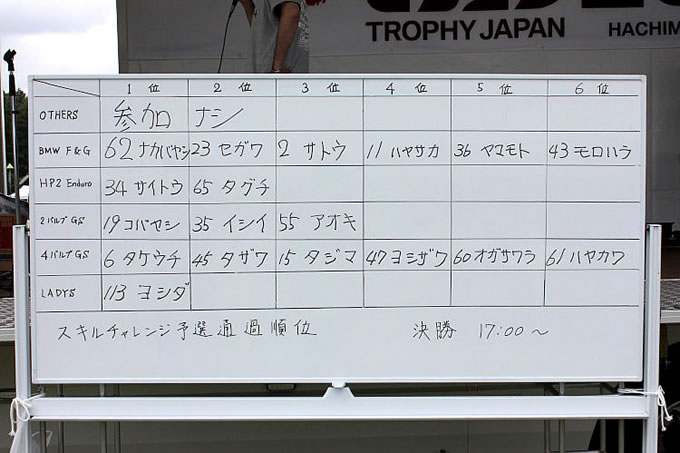 TROPHY JAPAN HACHIM
1位 2位 3位 4位 5位 6位
OTHERS 参加 ナシ
BMW F&G 62 ナカバヤシ 23 セガワ 2 サトウ 11 ハヤサカ 36 ヤマモト 43 モロハラ
HP2 Enduro 34 サイトウ 65 タグチ
2バルブGS 19 コバヤシ 35 イシイ 55 アオキ
4バルブGS 6 タケウチ 45 タザワ 15 タジマ 47 ヨシザワ 60 オガサワラ 61 ハヤカワ
LADYS 113 ヨシダ
スキルチャレンジ予選通過順位 決勝 17:00～